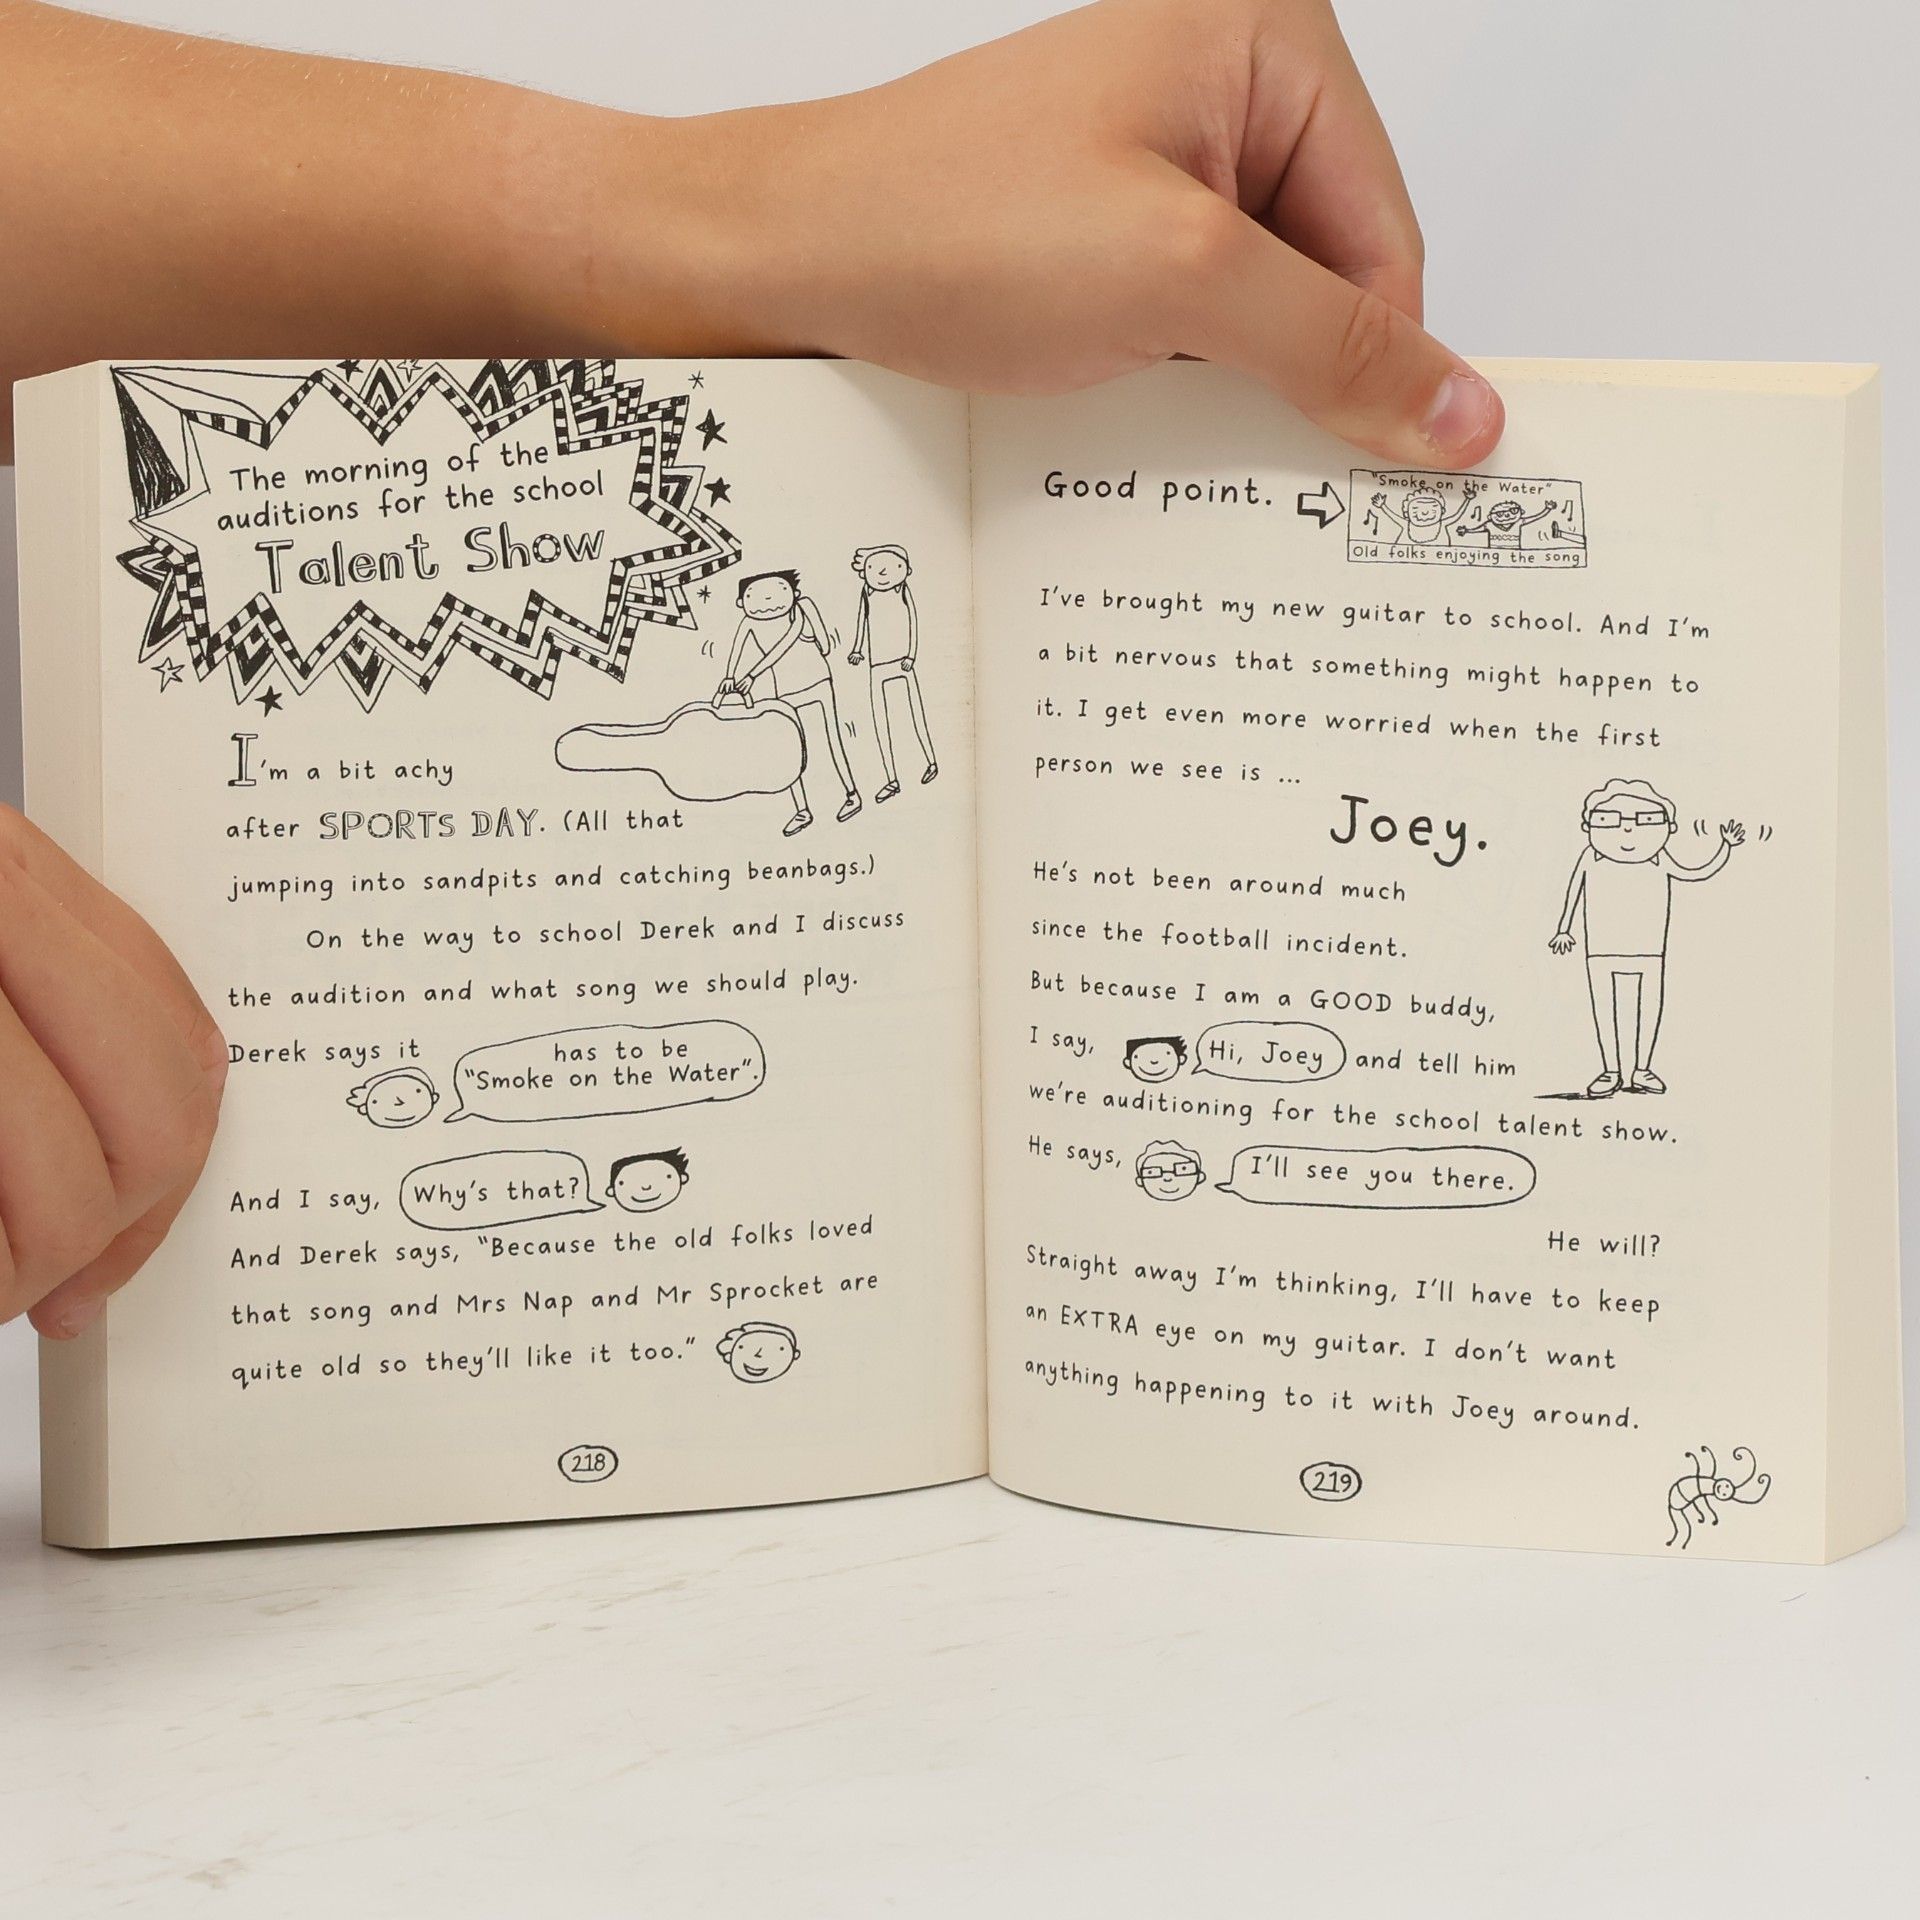 The morning of the
auditions for the school
Talent Show
I'm a bit achy
after SPORTS DAY. (All that
jumping into sandpits and catching beanbags.)
On the way to school Derek and I discuss
the audition and what song we should play.
Derek says it
has to be
"Smoke on the Water".
And I say, Why's that?
And Derek says, "Because the old folks loved
that song and Mrs Nap and Mr Sprocket are
quite old so they'll like it too."
218
Good point.
"Smoke on the Water"
Old folks enjoying the song
I've brought my new guitar to school. And I'm
a bit nervous that something might happen to
it. I get even more worried when the first
person we see is ...
Joey.
He's not been around much
since the football incident.
But because I am a GOOD buddy,
I say, Hi, Joey and tell him
we're auditioning for the school talent show.
He says, I'll see you there.
He will?
Straight away I'm thinking, I'll have to keep
an EXTRA eye on my guitar. I don't want
anything happening to it with Joey around.
219